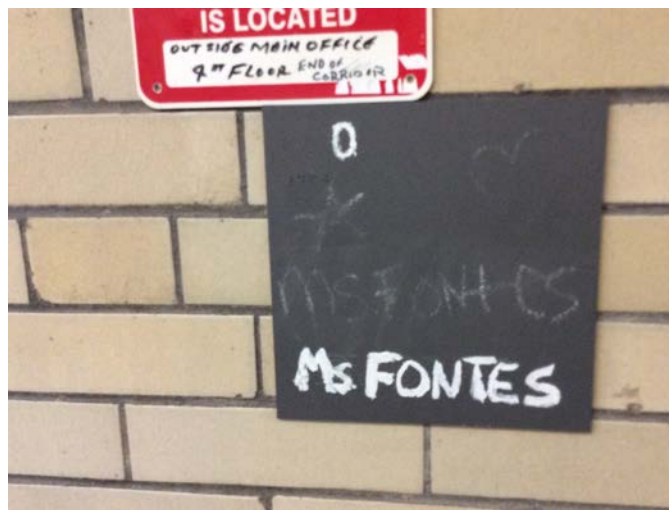 IS LOCATED
OUTSIDE MAIN OFFICE
4TH FLOOR END OF
CORRIDOR
O
Ms FONTES
Ms. FONTES